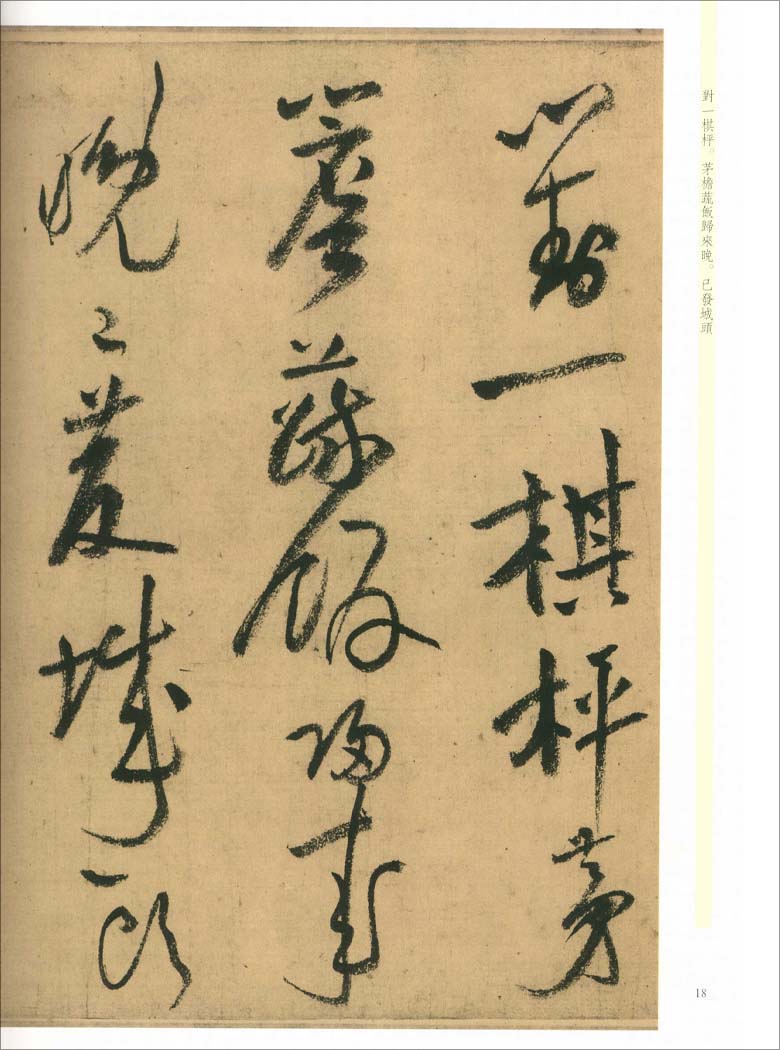 對一棋枰。茅檐蔬飯歸來晚。已發城頭
對一棋枰茅
簷蔬飯歸來
晚已發城頭
18